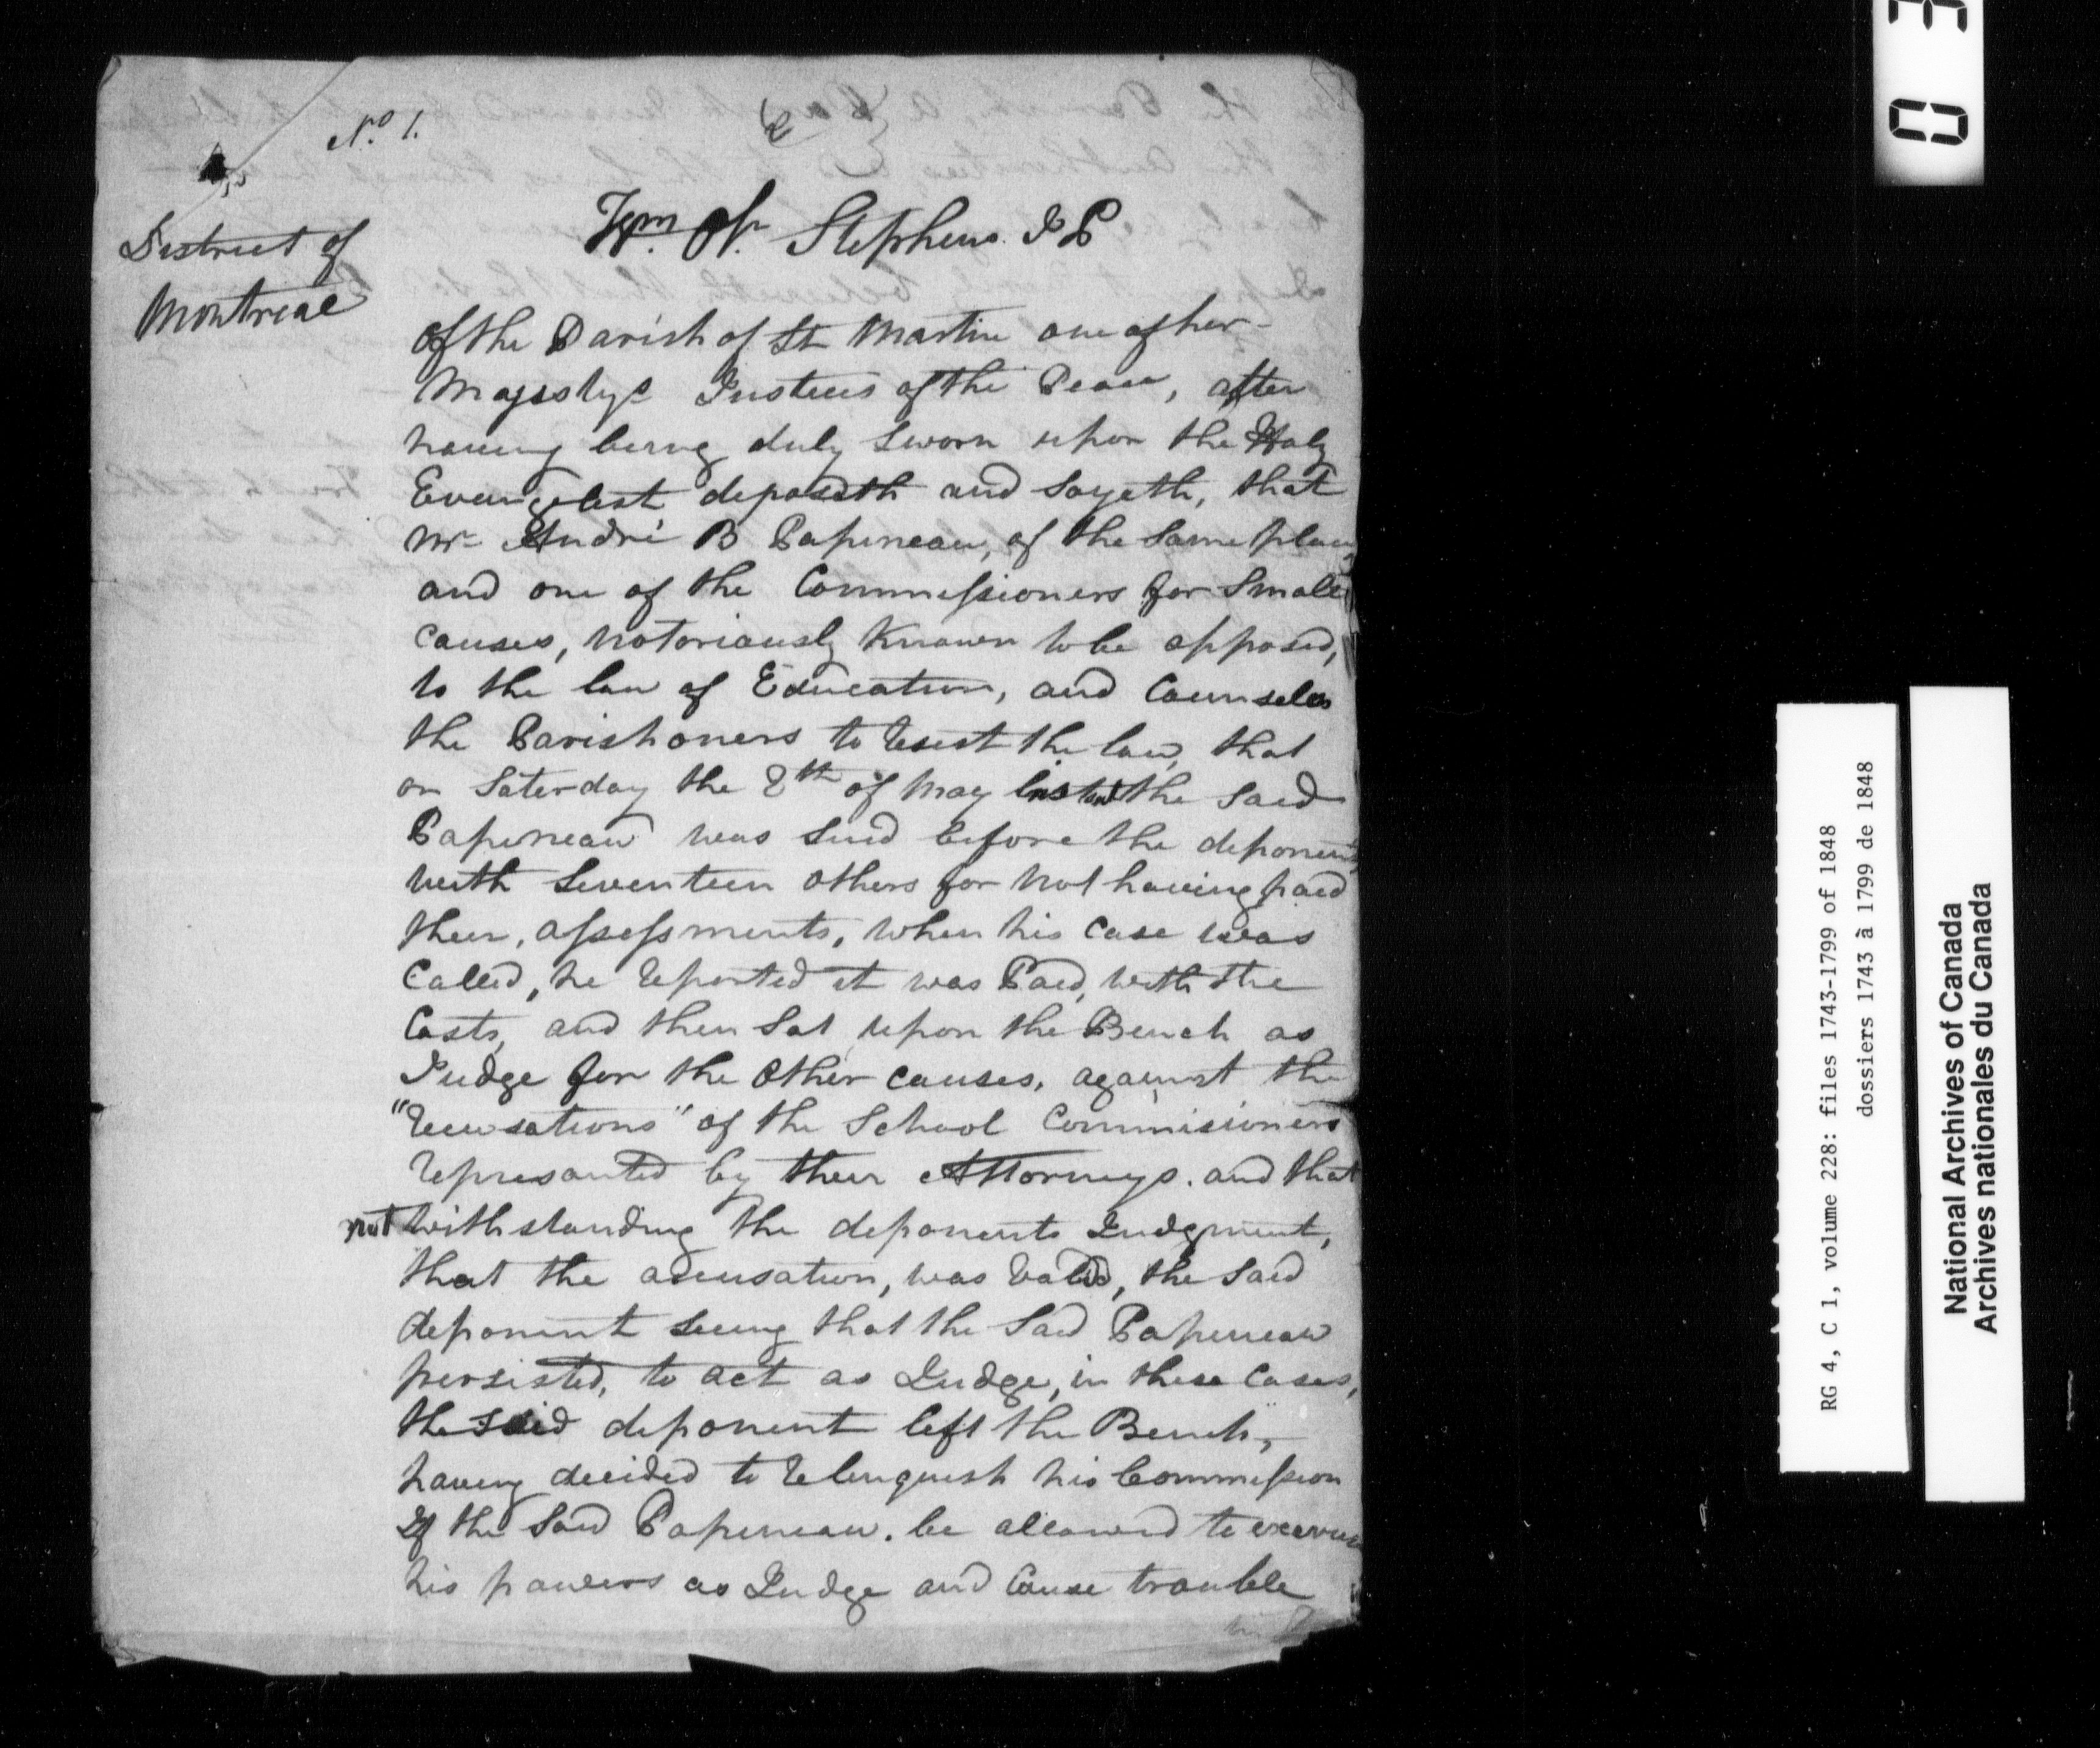 No. 1.
2
District of
Montreal
Wm. St. Stephens J P
Of the Parish of St Martin one of her
Majestys Justices of the Peace, after
having being duly sworn upon the Holy
Evangelist deposeth and sayeth, that
Mr André B Papineau, of the same place
and one of the Commissioners for Small
Causes, notoriously Known to be opposed,
to the law of Education, and Counseles
the Parishoners to resist the law, that
on Saterday the 8th of May the said
Papineau was sued before the deponent
with Seventeen others for not having paid
their, assessments, when his Case was
Called, he reported it was Paid, with the
Costs, and then Sat upon the Bench as
Judge for the Other causes, against the
"recusations" of the School Commisioners
represanted by their Attorneys. and that
not withstanding the deponents Judgment,
that the acusation, was valid, the said
deponent seeing that the Said Papineau
persisted, to act as Judge, in these Cases,
the said deponent left the Bench,
having decided to relinquish his Commission
If the Said Papineau. be allowed to exercise
his powers as Judge and Cause trouble
0 3
RG 4, C 1, volume 228: files 1743-1799 of 1848
dossiers 1743 à 1799 de 1848
National Archives of Canada
Archives nationales du Canada